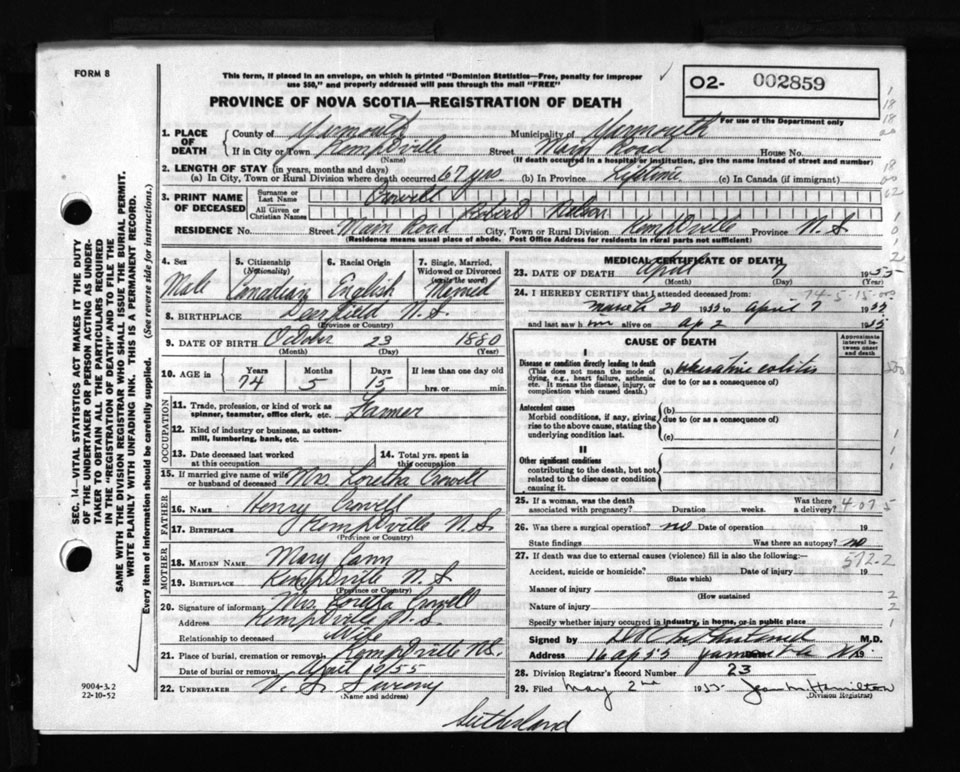 FORM 8
This form, if placed in an envelope, on which is printed "Dominion Statistics—Free, penalty for improper
use $50," and properly addressed will pass through the mail "FREE"
PROVINCE OF NOVA SCOTIA—REGISTRATION OF DEATH
O2- 002859
For use of the Department only
1. PLACE OF DEATH County of Yarmouth Municipality of Yarmouth
If in City or Town Kemptville Street Main Road House No.
(Name) (If death occurred in a hospital or institution, give the name instead of street and number)
2. LENGTH OF STAY (in years, months and days)
(a) In City, Town or Rural Division where death occurred 67 yrs. (b) In Province Lifetime (c) In Canada (if immigrant)
3. PRINT NAME OF DECEASED Surname or Last Name Crowell
All Given or Christian Names Robert Nelson
RESIDENCE No. Street Main Road City, Town or Rural Division Kemptville Province N.S
(Residence means usual place of abode. Post Office Address for residents in rural parts not sufficient)
4. Sex Male
5. Citizenship (Nationality) Canadian
6. Racial Origin English
7. Single, Married, Widowed or Divorced (write the word) Married
8. BIRTHPLACE Deerfield N.S.
(Province or Country)
9. DATE OF BIRTH October 23 1880
(Month) (Day) (Year)
10. AGE in Years 74 Months 5 Days 15 If less than one day old
hrs. or min.
OCCUPATION
11. Trade, profession, or kind of work as spinner, teamster, office clerk, etc. Farmer
12. Kind of industry or business, as cotton-mill, lumbering, bank, etc.
13. Date deceased last worked at this occupation
14. Total yrs. spent in this occupation
15. If married give name of wife or husband of deceased Mrs. Loretha Crowell
FATHER
16. NAME Henry Crowell
17. BIRTHPLACE Kemptville N.S
(Province or Country)
MOTHER
18. MAIDEN NAME Mary Cann
19. BIRTHPLACE Kemptville N.S
(Province or Country)
20. Signature of informant Mrs. Loretha Crowell
Address Kemptville N.S.
Relationship to deceased Wife
21. Place of burial, cremation or removal Kemptville N.S.
Date of burial or removal April 10/55
22. UNDERTAKER V. S. Sweeny
(Name and address)
MEDICAL CERTIFICATE OF DEATH
23. DATE OF DEATH April 7 1955
(Month) (Day) (Year)
24. I HEREBY CERTIFY that I attended deceased from: 74-5-15
March 20 1955 to April 7 1955
and last saw him alive on Ap 2 1955
CAUSE OF DEATH
Approximate interval between onset and death
I
Disease or condition directly leading to death (a) ulcerative colitis
(This does not mean the mode of dying, e.g., heart failure, asthenia, etc. It means the disease, injury, or complication which caused death.) due to (or as a consequence of)
Antecedent causes (b)
Morbid conditions, if any, giving rise to the above cause, stating the underlying condition last. due to (or as a consequence of)
(c)
II
Other significant conditions
contributing to the death, but not related to the disease or condition causing it.
25. If a woman, was the death associated with pregnancy? Duration weeks. Was there a delivery?
4-07 5
26. Was there a surgical operation? no Date of operation 19
State findings Was there an autopsy? no
572-2
27. If death was due to external causes (violence) fill in also the following:—
Accident, suicide or homicide? Date of injury 19
(State which)
Manner of injury
(How sustained
Nature of injury
Specify whether injury occurred in industry, in home, or in public place
Signed by M.D.
Address 16 ap 55 19
28. Division Registrar's Record Number 23
29. Filed May 2nd 1955 Jean M. Hamilton
(Division Registrar)
Sutherland
SEC. 14—VITAL STATISTICS ACT MAKES IT THE DUTY
OF THE UNDERTAKER OR PERSON ACTING AS UNDER-
TAKER TO OBTAIN ALL THE PARTICULARS REQUIRED
IN THE "REGISTRATION OF DEATH" AND TO FILE THE
SAME WITH THE DIVISION REGISTRAR WHO SHALL ISSUE THE BURIAL PERMIT.
WRITE PLAINLY WITH UNFADING INK. THIS IS A PERMANENT RECORD.
Every item of information should be carefully supplied. (See reverse side for instructions.)
9004-3.2
22-10-52